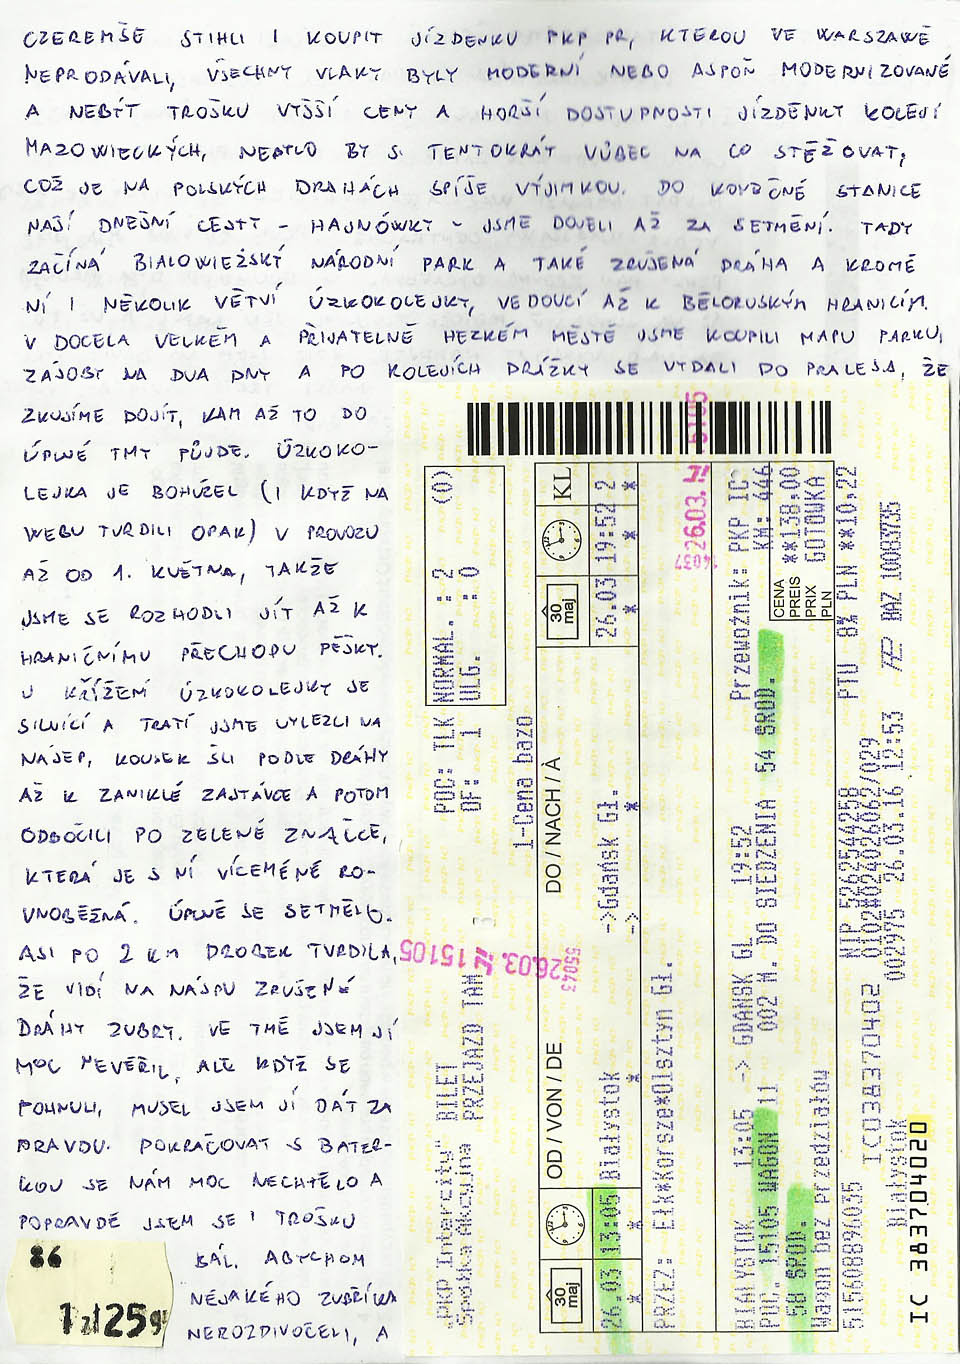 CZEREMŠE STIHLI I KOUPIT JÍZDENKU PKP PR, KTEROU VE WARSZAWĚ
NEPRODÁVALI, VŠECHNY VLAKY BYLY MODERNÍ NEBO ASPOŇ MODERNIZOVANÉ
A NEBÝT TROŠKU VYŠŠÍ CENY A HORŠÍ DOSTUPNOSTI JÍZDENKY KOLEJÍ
MAZOWIECKÝCH, NEBYLO BY SI TENTOKRÁT VŮBEC NA CO STĚŽOVAT,
COŽ JE NA POLSKÝCH DRAHÁCH SPÍŠE VÝJIMKOU. DO KONEČNÉ STANICE
NAŠÍ DNEŠNÍ CESTY - HAJNÓWKY - JSME DOJELI AŽ ZA SETMĚNÍ. TADY
ZAČÍNÁ BIALOWIEŽSKÝ NÁRODNÍ PARK A TAKÉ ZRUŠENÁ DRÁHA A KROMĚ
NÍ I NĚKOLIK VĚTVÍ ÚZKOKOLEJKY, VEDOUCÍ AŽ K BĚLORUSKÝM HRANICÍM.
V DOCELA VELKÉM A PŘIJATELNĚ HEZKÉM MĚSTĚ JSME KOUPILI MAPU PARKU,
ZÁSOBY NA DVA DNY A PO KOLEJÍCH DRÁŽKY SE VYDALI DO PRALESA, ŽE
ZKUSÍME DOJÍT, KAM AŽ TO DO
ÚPLNÉ TMY PŮJDE. ÚZKOKO-
LEJKA JE BOHUŽEL (I KDYŽ NA
WEBU TVRDILI OPAK) V PROVOZU
AŽ OD 1. KVĚTNA, TAKŽE
JSME SE ROZHODLI JÍT AŽ K
HRANIČNÍMU PŘECHODU PĚŠKY.
U KŘÍŽENÍ ÚZKOKOLEJKY SE
SILNICÍ A TRATÍ JSME VYLEZLI NA
NÁSEP, KOUSEK ŠLI PODLE DRÁHY
AŽ K ZANIKLÉ ZASTÁVCE A POTOM
ODBOČILI PO ZELENÉ ZNAČCE,
KTERÁ JE S NÍ VÍCEMÉNĚ RO-
VNOBĚŽNÁ. ÚPLNĚ SE SETMĚLO.
ASI PO 2 KM DROBEK TVRDILA,
ŽE VIDÍ NA NÁSPU ZRUŠENÉ
DRÁHY ZUBRY. VE TMĚ JSEM JÍ
MOC NEVĚŘIL, ALE KDYŽ SE
POHNULI, MUSEL JSEM JÍ DÁT ZA
PRAVDU. POKRAČOVAT S BATER-
KOU SE NÁM MOC NECHTĚLO A
POPRAVDĚ JSEM SE I TROŠKU
BÁL, ABYCHOM
NĚJAKÉHO ZUBŘÍKA
NEROZDIVOČELI, A
86
1 zł 25 gr
"PKP Intercity"
Spółka Akcyjna
BILET
PRZEJAZD TAM
POC: TLK
OF: 1
NORMAL. : 2 (0)
ULG. : 0
1-Cena bazo
30 maj
OD / VON / DE
DO / NACH / À
30 maj
KL
26.03 13:05 Białystok ->Gdańsk Gł. 26.03 19:52 2
* * -> * * * *
PRZEZ: Ełk*Korsze*Olsztyn Gł.
BIAŁYSTOK 13:05 -> GDAŃSK GŁ 19:52 Przewoźnik: PKP IC
POC. 15105 WAGON 11 002 M. DO SIEDZENIA 54 ŚROD. KM: 446
58 ŚROD.
Wagon bez przedziałów
CENA
PREIS
PRIX
PLN
**138,00
GOTÓWKA
PTU 8% PLN **10,22
515608896035 NIP 5262544258
IC0383704020 0102#024026062/029
Białystok 002975 26.03.16 12:53 BAZ 10083735
IC 383704020
26.03. 15105
55043
26.03.
14037
26.03.
15105